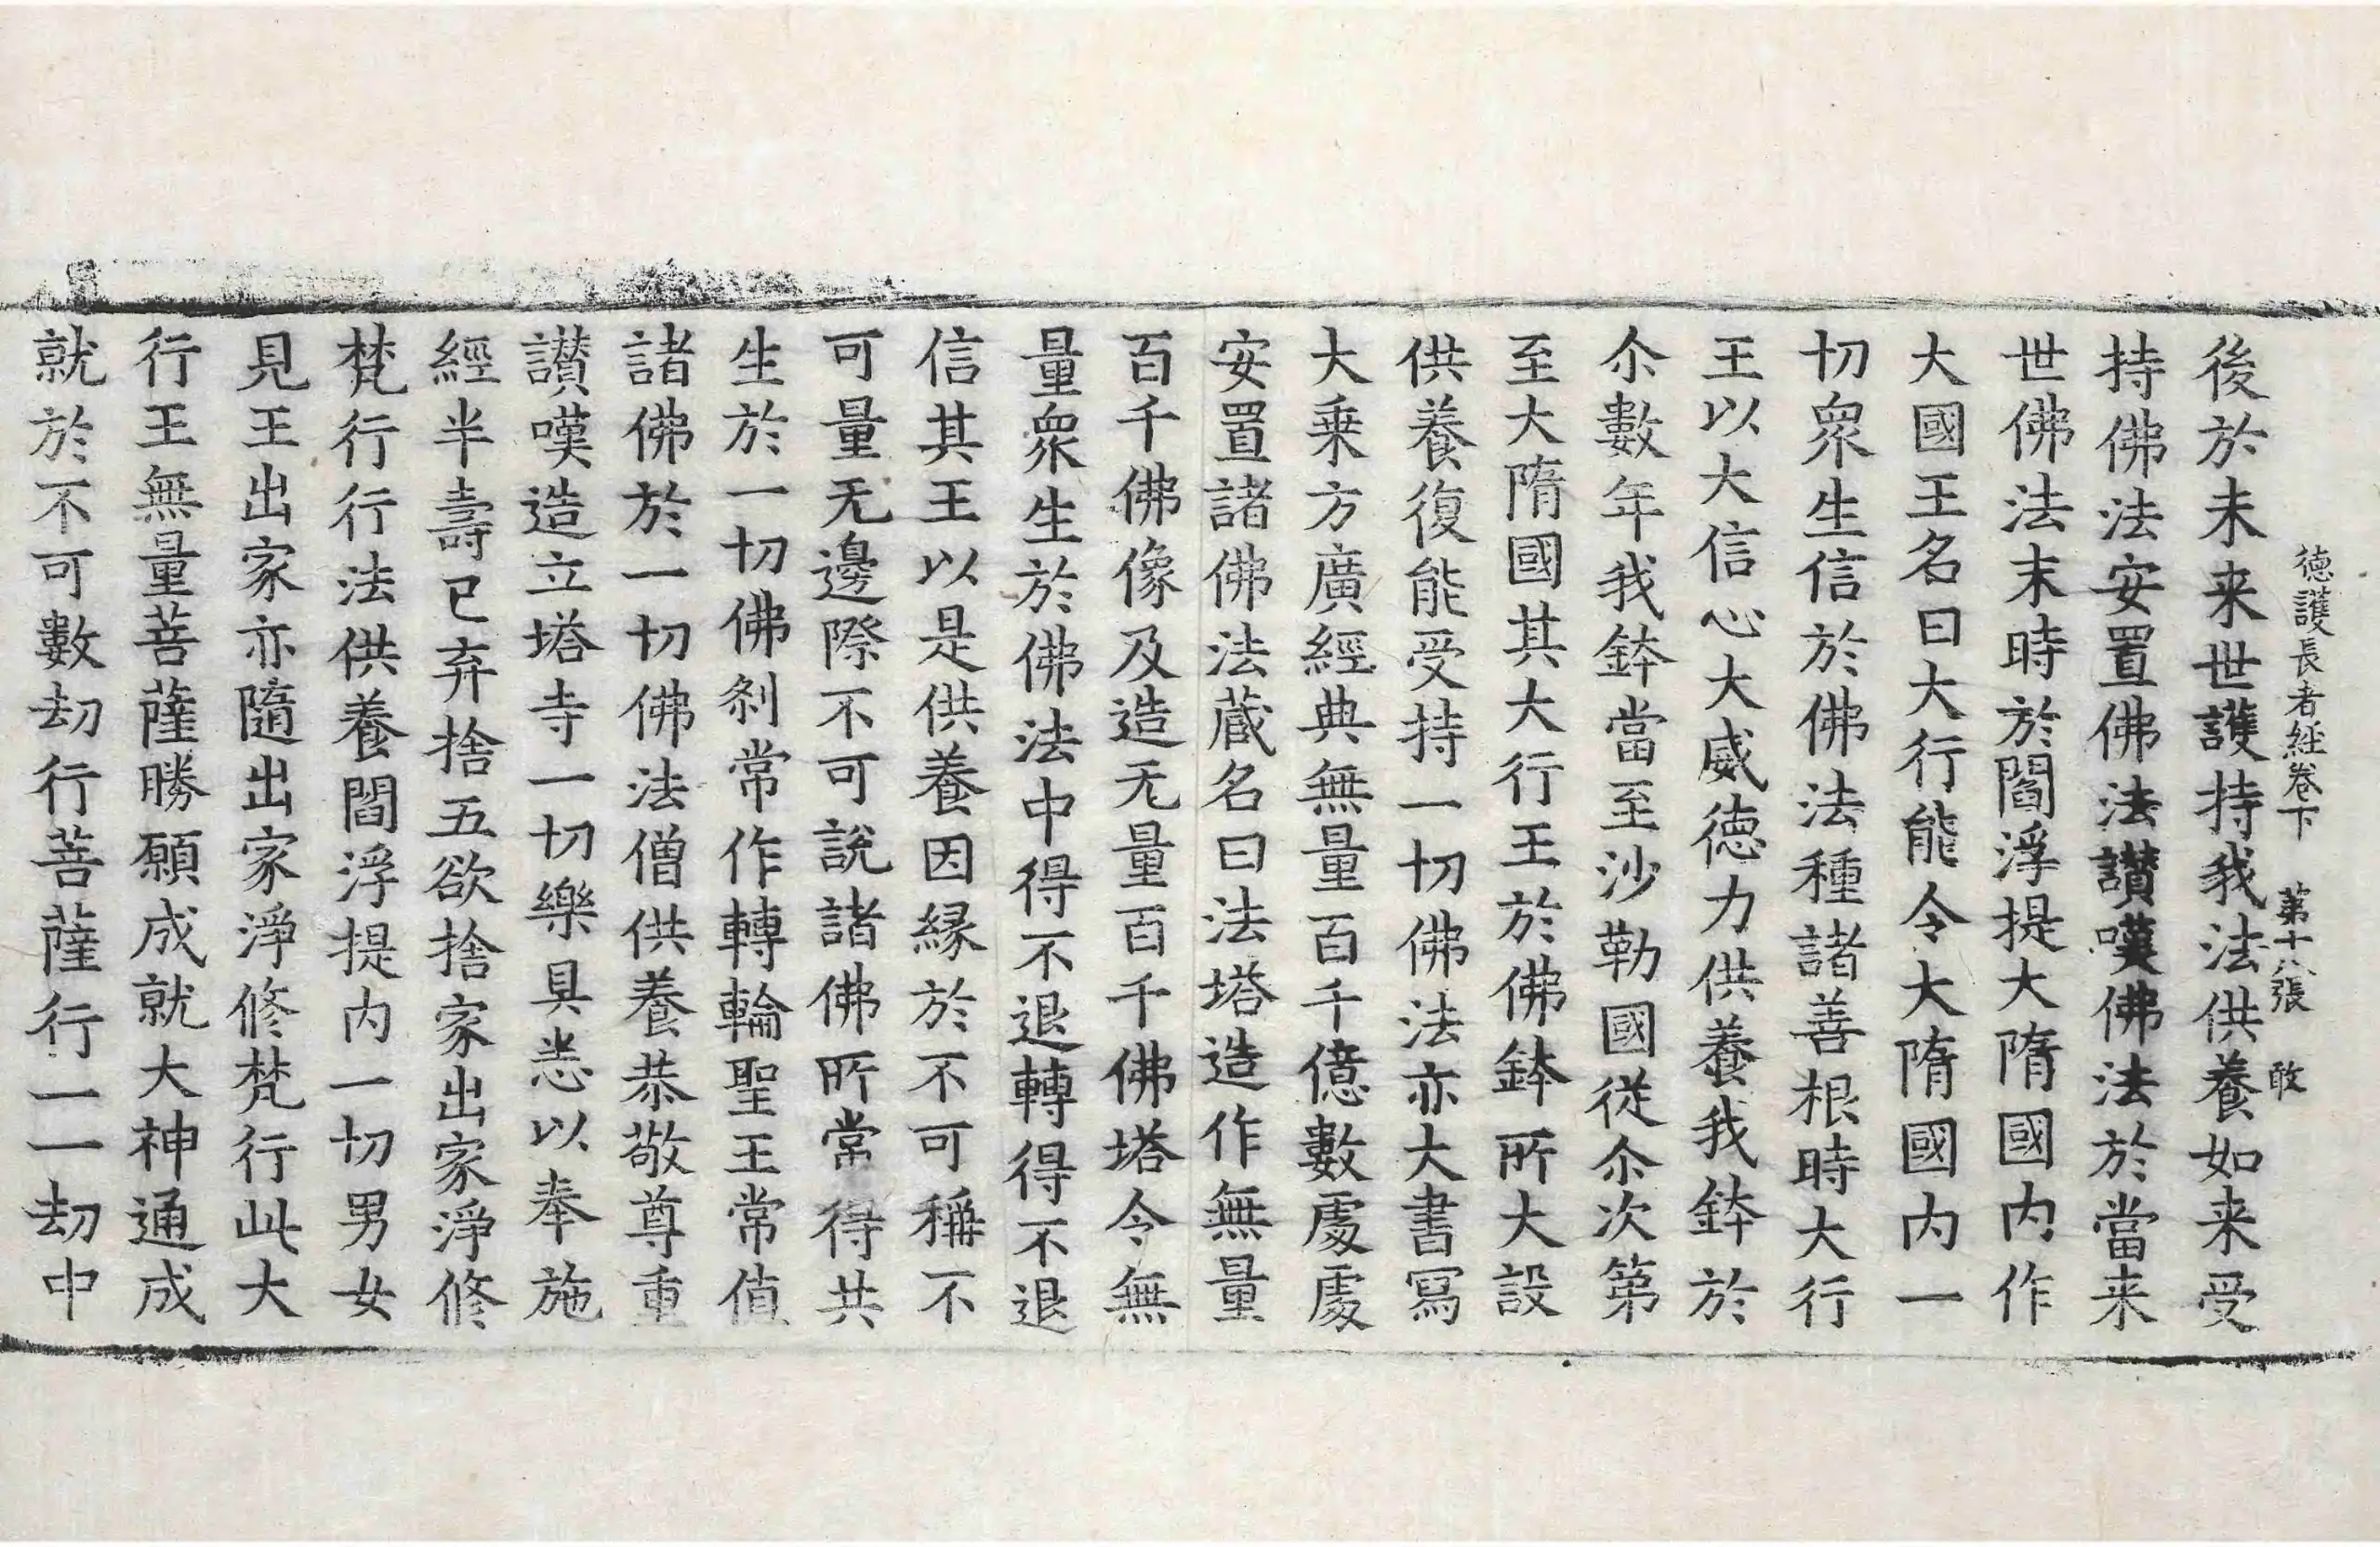 德護長者經卷下 第十八張 敢
後於未来世護持我法供養如来受
持佛法安置佛法讃嘆佛法於當来
世佛法末時於閻浮提大隋國内作
大國王名曰大行能令大隋國内一
切衆生信於佛法種諸善根時大行
王以大信心大威德力供養我鉢於
尒數年我鉢當至沙勒國從尒次第
至大隋國其大行王於佛鉢所大設
供養復能受持一切佛法亦大書寫
大乗方廣經典無量百千億數處處
安置諸佛法蔵名曰法塔造作無量
百千佛像及造无量百千佛塔令無
量衆生於佛法中得不退轉得不退
信其王以是供養因縁於不可稱不
可量无邊際不可說諸佛所常得共
生於一切佛剎常作轉輪聖王常値
諸佛於一切佛法僧供養恭敬尊重
讃嘆造立塔寺一切樂具悉以奉施
經半壽已弃捨五欲捨家出家淨修
梵行行法供養閻浮提内一切男女
見王出家亦隨出家淨修梵行此大
行王無量菩薩勝願成就大神通成
就於不可數劫行菩薩行一一劫中